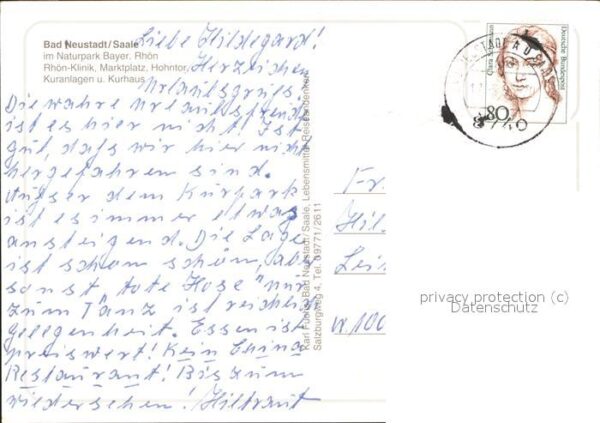 Bad Neustadt/Saale
im Naturpark Bayer. Rhön
Rhön-Klinik, Marktplatz, Hohntor,
Kuranlagen u. Kurhaus
Liebe Hildegard!
Herzlichen
Urlaubsgruß
Die wahre Urlaubsfreude
ist es hier nicht! Ist
gut, daß wir hier nicht
hergefahren sind.
Außer dem Kurpark
ist es immer etwas
ansteigend. Die Lage
ist schon schön, aber
sonst tote Hose "nur
zum Tanz ist reichlich
Gelegenheit. Essen ist
preiswert! Kein China
Restaurant! Bis zum
Wiedersehen! Hiltraut
Bad Neustadt/Saale, Lebensmittel
Salzburgweg 4, Tel. 09771/2611
Deutsche Bundespost
80
8740
Fr.
Hil
Lein
W 100
privacy protection (c)
Datenschutz